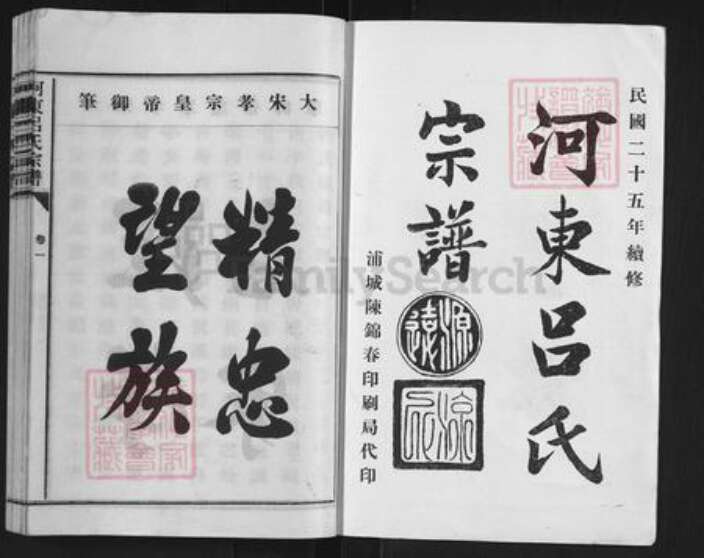 民國二十五年續修
河東呂氏
宗譜
源遠
流
浦城陳錦春印刷局代印
大宋孝宗皇帝御筆
精忠
望族
河東呂氏宗譜
卷一
FamilySearch